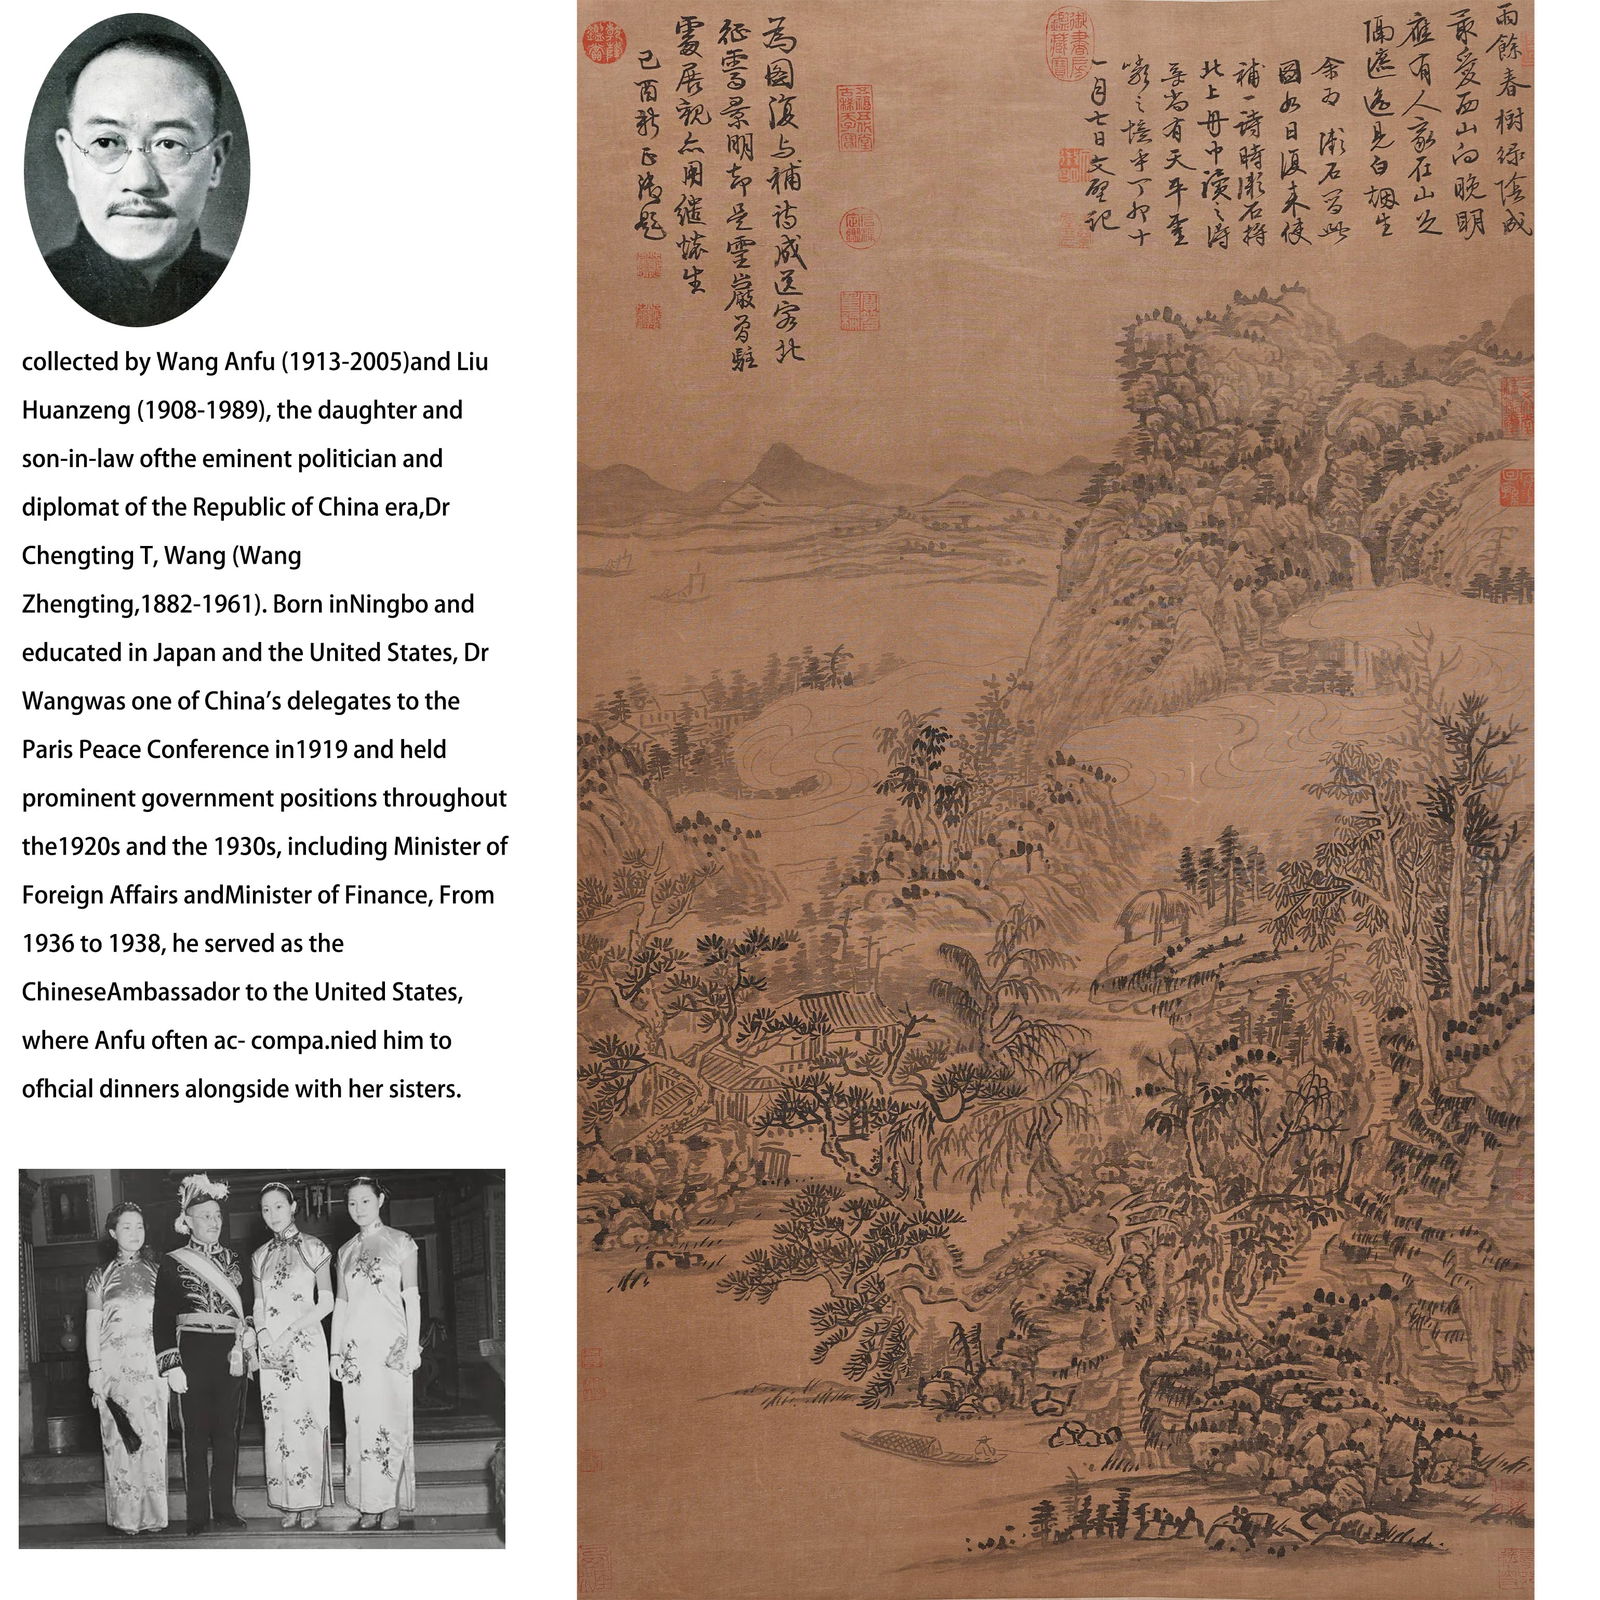 collected by Wang Anfu (1913-2005)and Liu
Huanzeng (1908-1989), the daughter and
son-in-law ofthe eminent politician and
diplomat of the Republic of China era,Dr
Chengting T, Wang (Wang
Zhengting,1882-1961). Born inNingbo and
educated in Japan and the United States, Dr
Wangwas one of China's delegates to the
Paris Peace Conference in1919 and held
prominent government positions throughout
the1920s and the 1930s, including Minister of
Foreign Affairs andMinister of Finance, From
1936 to 1938, he served as the
ChineseAmbassador to the United States,
where Anfu often ac- compa.nied him to
ofhcial dinners alongside with her sisters.
雨餘春樹綠陰成
最愛西山向晚明
應有人家在山足
隔遙見白烟生
余為瀨石寫此
圖日復來使
補一詩時瀨石將
北上舟中讀之得
無尚有天平靈
巖之憶乎丁卯十
一月七日文壁記
為圖復与補詩成送客北
征雪景明却是靈巖曾駐
展觀亦用生
己酉新正御題